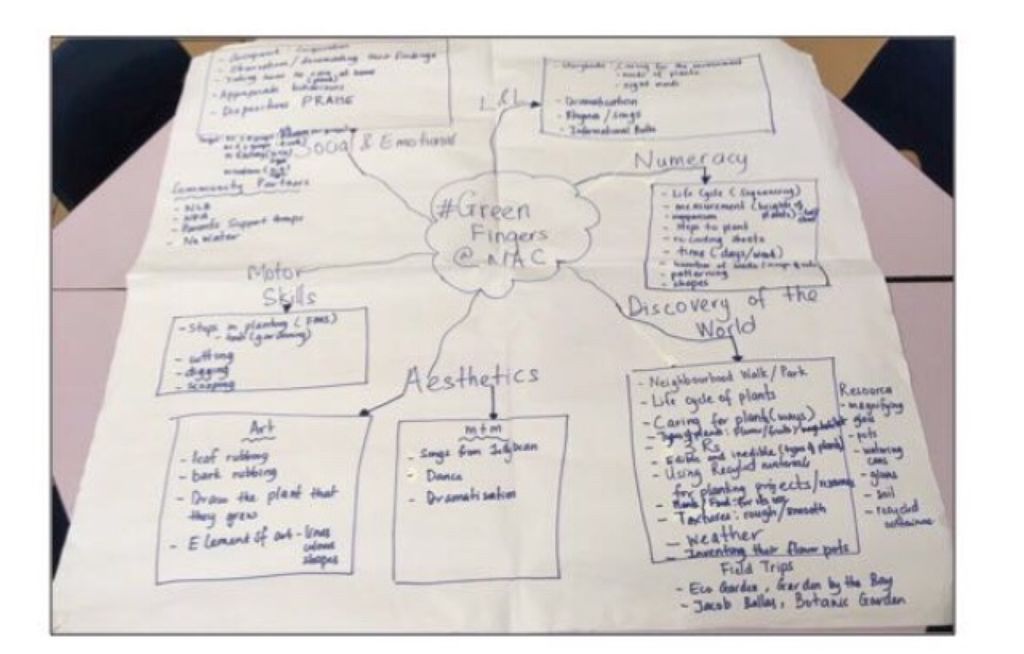 - Observation / documenting their findings
- Taking home to care at home
- Appropriate behaviours
- Dispositions PRAISE
Social & Emotional
Community Partners
- NLB
- Parents Support Groups
L & L
- Storybooks: Caring for the environment
- needs of plants
- Dramatisation
- Rhymes / songs
- Informational Books
Numeracy
- Life Cycle (Sequencing)
- measurement (heights of plants)
- comparison
- steps to plant
- recording sheets
- time (days/week)
- patterning
- shapes
#Green
Fingers
@ NAC
Motor
Skills
- Steps in planting (FMS)
- tools (gardening)
- cutting
- digging
- scooping
Aesthetics
Art
- leaf rubbing
- bark rubbing
- Draw the plant that
they grew
- Element of art - lines
colours
shapes
m+m
- Songs from Jellybean
- Dance
- Dramatisation
Discovery of the
World
- Neighbourhood Walk / Park
- Life cycle of plants
- Caring for plants (ways)
- 3 Rs
- Edible and inedible (types of plants)
- Using Recycled materials
for planting projects /
- Textures: rough / smooth
- Weather
- Inventing their flower pots
Resource
- magnifying
glass
- pots
- watering
cans
- gloves
- soil
- recycled
containers
Field Trips
- Eco Garden, Garden by the Bay
- Jacob Ballas, Botanic Garden